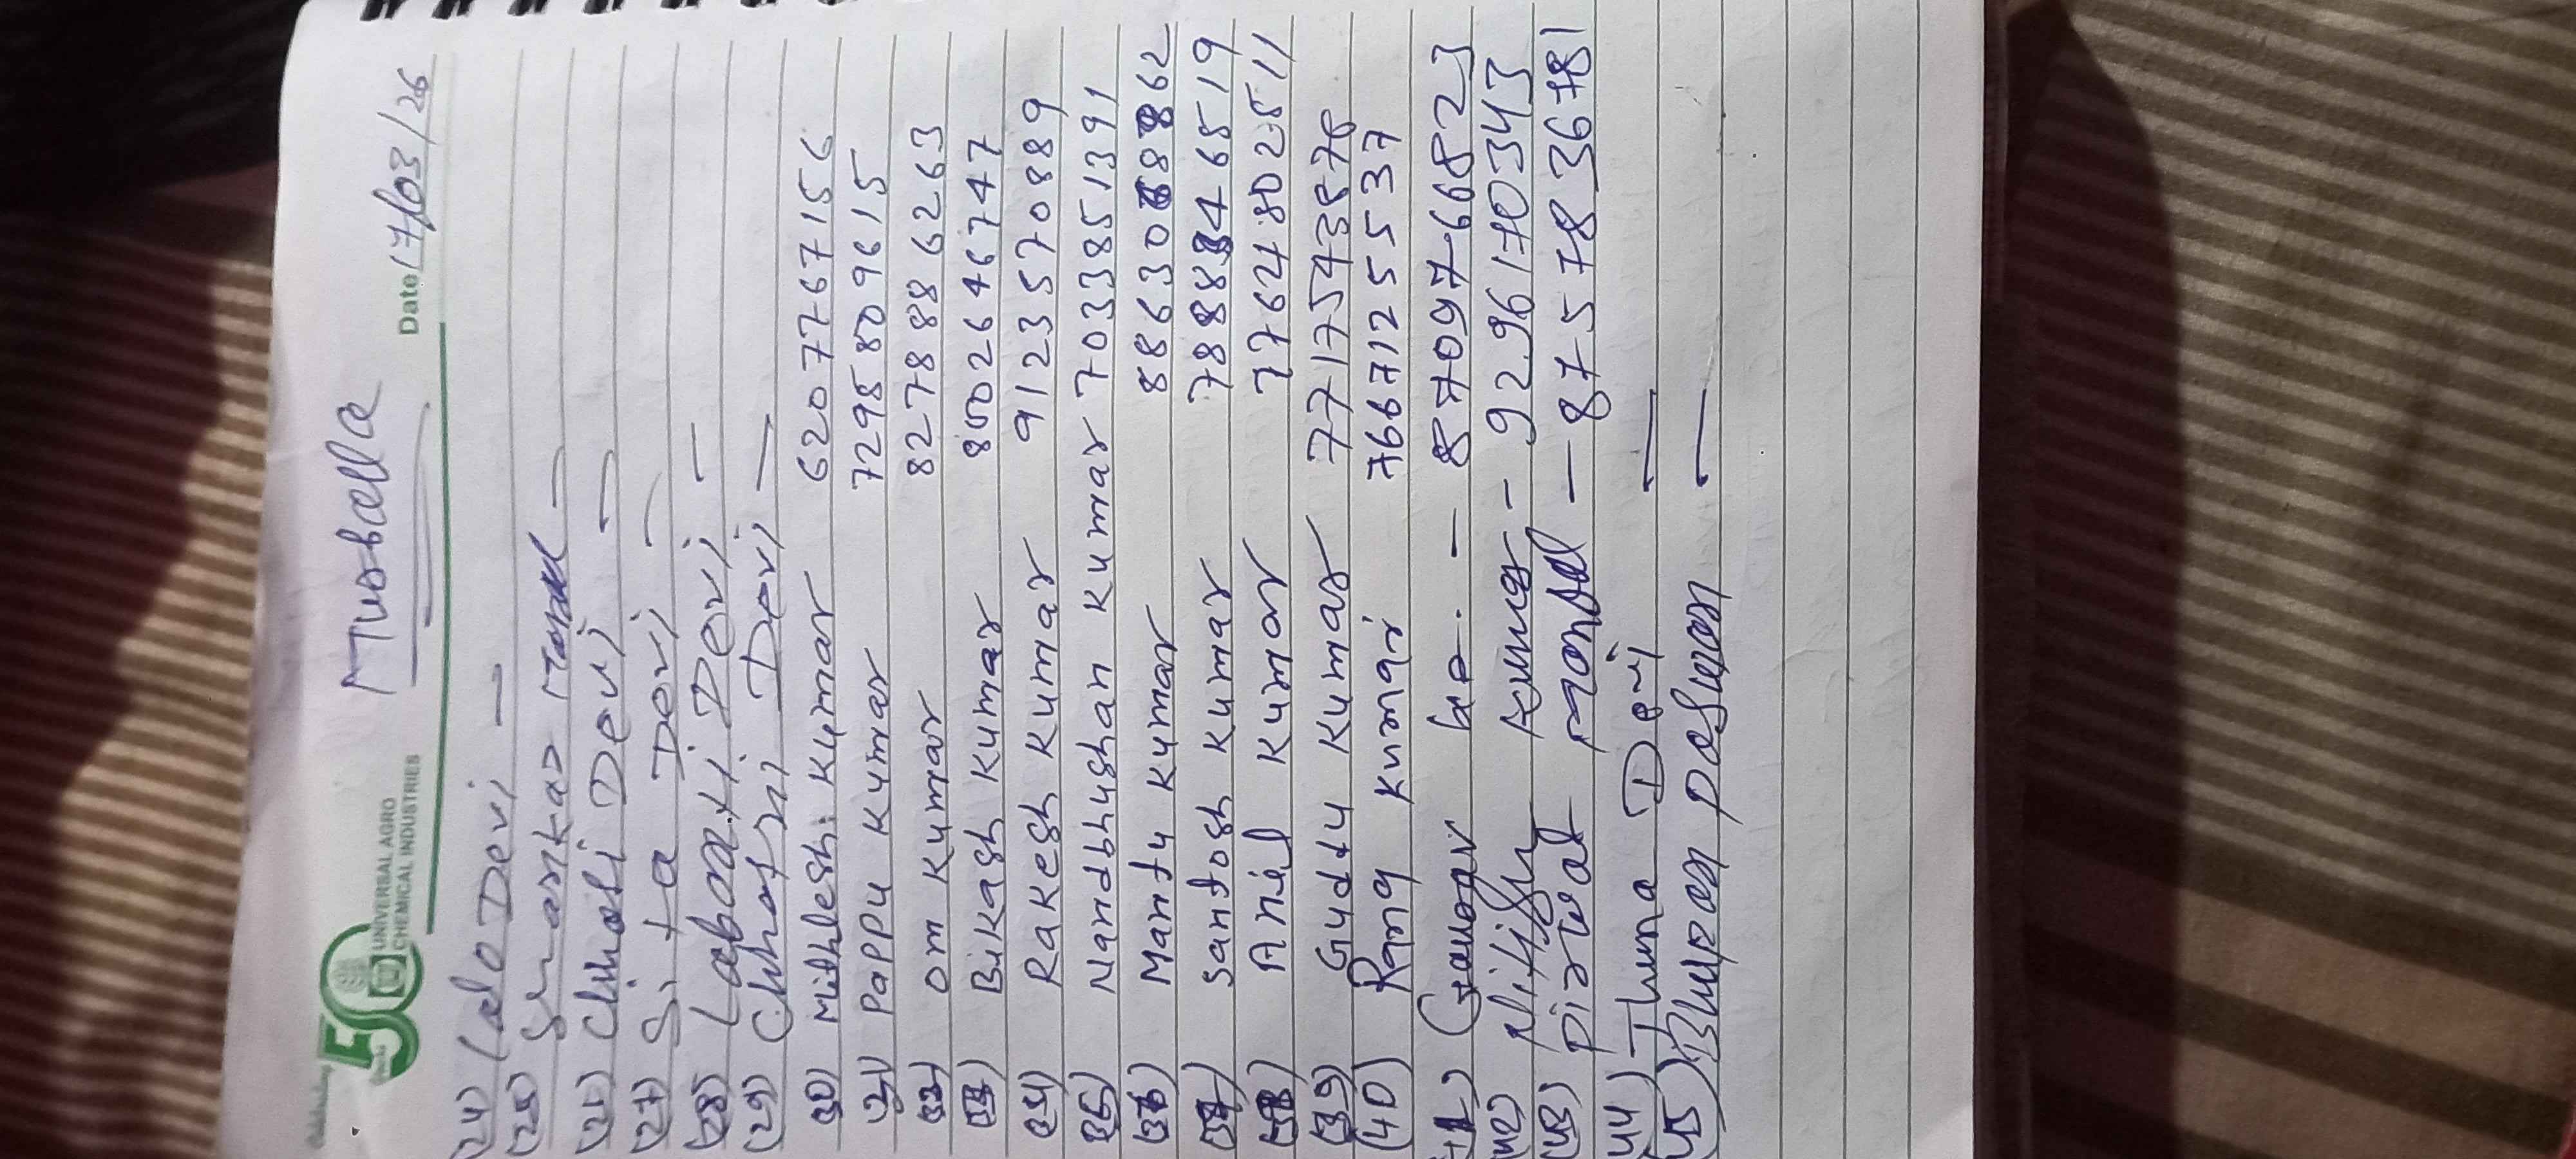 Celebrating
50
UNIVERSAL AGRO
CHEMICAL INDUSTRIES
Date 17/03/26
(24) Lalo Devi —
(25) Shankar —
(26) Chhoti Devi —
(27) Sita Devi —
(28) Devi —
(29) Devi —
30) Mithlesh Kumar 6207767156
31) Pappu Kumar 7295809615
32) Om Kumar 8278886263
33) Bikash Kumar 8002646747
34) Rakesh Kumar 9123570889
35) Nandbhushan Kumar 7033851391
36) Mantu Kumar
37) Santosh Kumar
38) Anil Kumar 7764802511
39) Guddu Kumar
(40) Kumari 7667125537
— 8709766823
(42) Nitish Kumar - 9296170343
(43) Mondal — 8757836781
(44) Devi —
(45) Paswan —